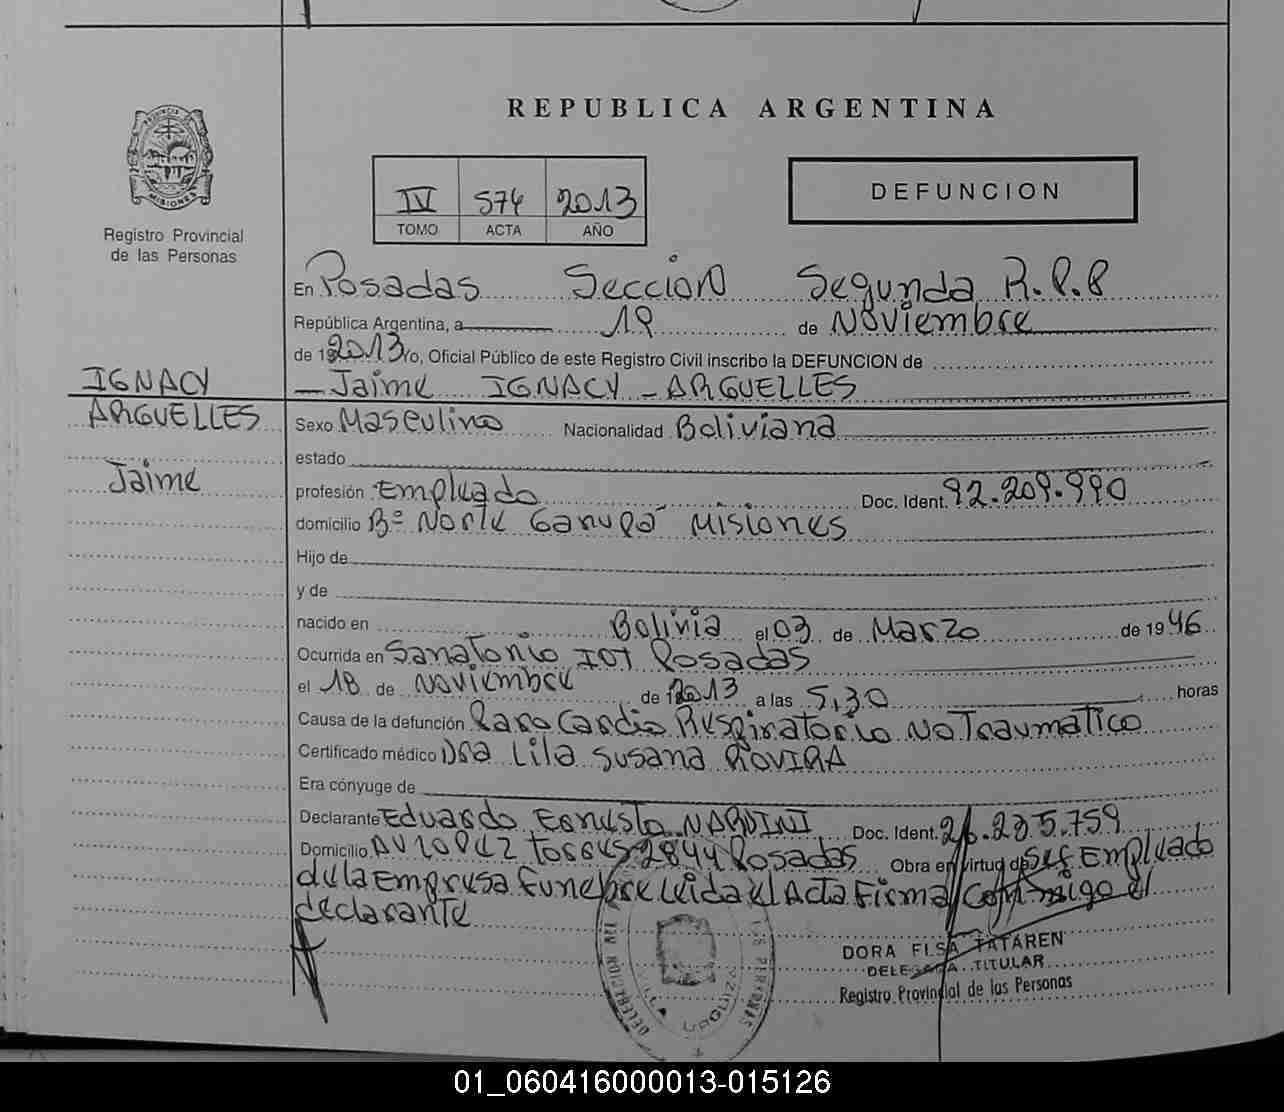 REPUBLICA ARGENTINA
IV 574 2013
TOMO ACTA AÑO
DEFUNCION
PROVINCIA DE MISIONES
Registro Provincial
de las Personas
En Posadas Sección Segunda R.P.P
República Argentina, a 19 de Noviembre
de 2013 Yo, Oficial Público de este Registro Civil inscribo la DEFUNCION de
Jaime IGNACY - ARGUELLES
IGNACY
ARGUELLES
Jaime
Sexo Masculino Nacionalidad Boliviana
estado
profesión Empleado Doc. Ident. 92.209.990
domicilio Bº Norte Garupá Misiones
Hijo de
y de
nacido en Bolivia el 03 de Marzo de 1946
Ocurrida en Sanatorio IOT Posadas
el 18 de Noviembre de 2013 a las 5,30 horas
Causa de la defunción Paro Cardio Respiratorio No Traumatico
Certificado médico Dra Lila Susana ROVIRA
Era cónyuge de
Declarante Eduardo Ernesto NARDINI Doc. Ident. 26.285.759
Domicilio AV LOPEZ TORRES 2844 Posadas Obra en virtud de Ser Empleado
de la Empresa Funebre Leida el Acta Firma Conmigo el
declarante
DORA ELSA TATAREN
DELEGADA TITULAR
Registro Provincial de las Personas
01_060416000013-015126